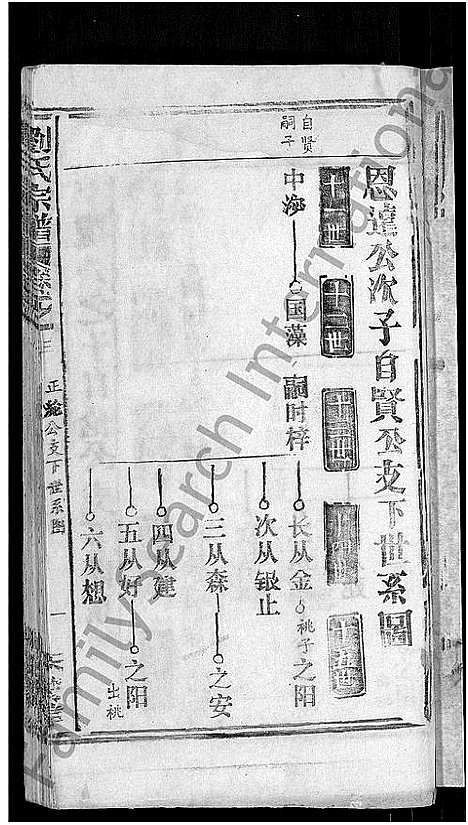 恩達公次子自賢公支下世系圖
十一世
十二世
十三世
十四世
十五世
自賢
嗣子
中海
国藻
嗣时梓
长从金
桃子之阳
次从银止
三从森
之安
四从建
五从好
之阳
出桃
六从想
劉氏宗譜
三
正 公支下世系图
一
FamilySearch International